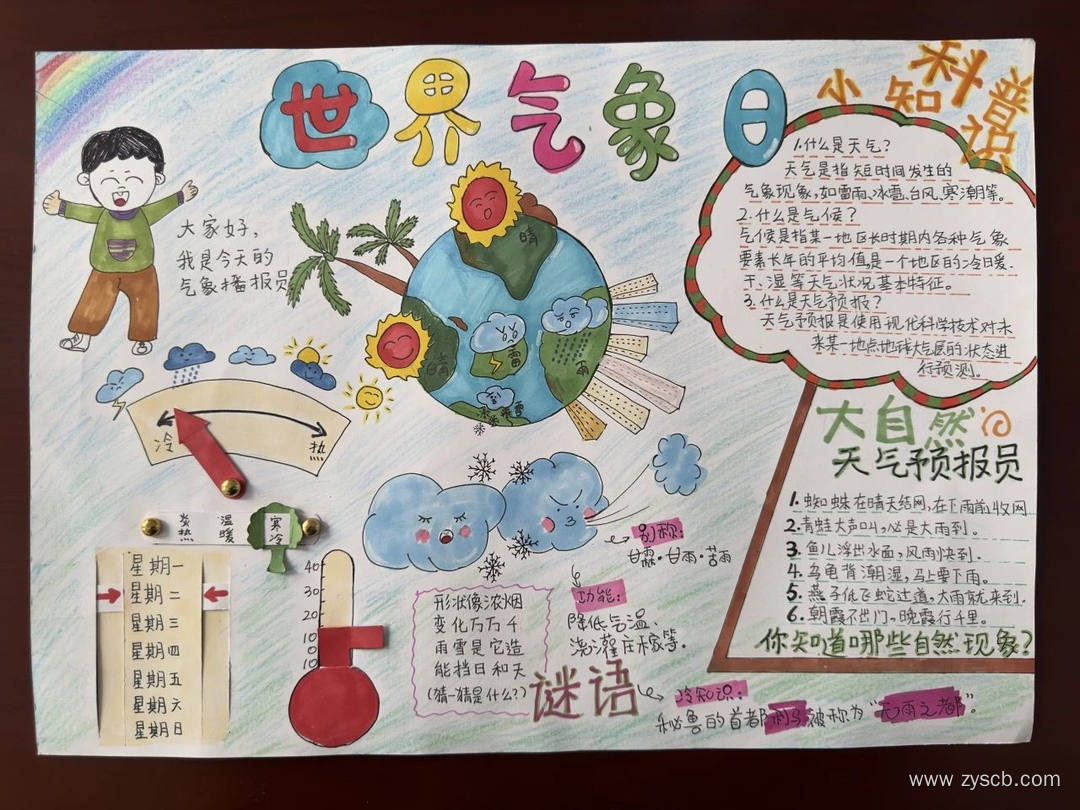 世界气象日
小知识科普
大家好,
我是今天的
气象播报员
1.什么是天气?
天气是指短时间发生的
气象现象,如雷雨、冰雹、台风、寒潮等。
2.什么是气候?
气候是指某一地区长时期内各种气象
要素长年的平均值是一个地区的冷日暖、
干、湿等天气状况基本特征。
3.什么是天气预报?
天气予报是使用现化科学技术对未
来某一地点地球大气层的状态进
行预测。
晴
晴
雷
雨
雪
冷
热
炎热
温暖
寒冷
星期一
星期二
星期三
星期四
星期五
星期六
星期日
40
30
20
10
0
10
形状像浓烟
变化万万千
雨雪是它造
能挡日和天
(猜一猜是什么?)
谜语
别称:
甘霖·甘雨·苦雨
功能:
降低气温
浇灌庄稼等。
冷知识:
秘鲁的首都利马被称为“无雨之都”。
大自然
天气预报员
1.蜘蛛在晴天结网,在下雨前收网
2.青蛙大声叫,必是大雨到.
3.鱼儿浮出水面,风雨快到.
4.乌龟背潮湿,马上要下雨。
5.燕子低飞蛇过道,大雨就来到.
6.朝霞不出门,晚霞行千里。
你知道哪些自然现象?
www.zyscb.com